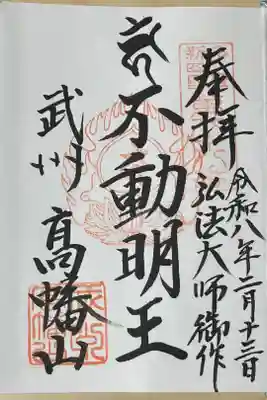 奉拝
令和八年二月十三日
弘法大師御作
不動明王
武州 高幡山